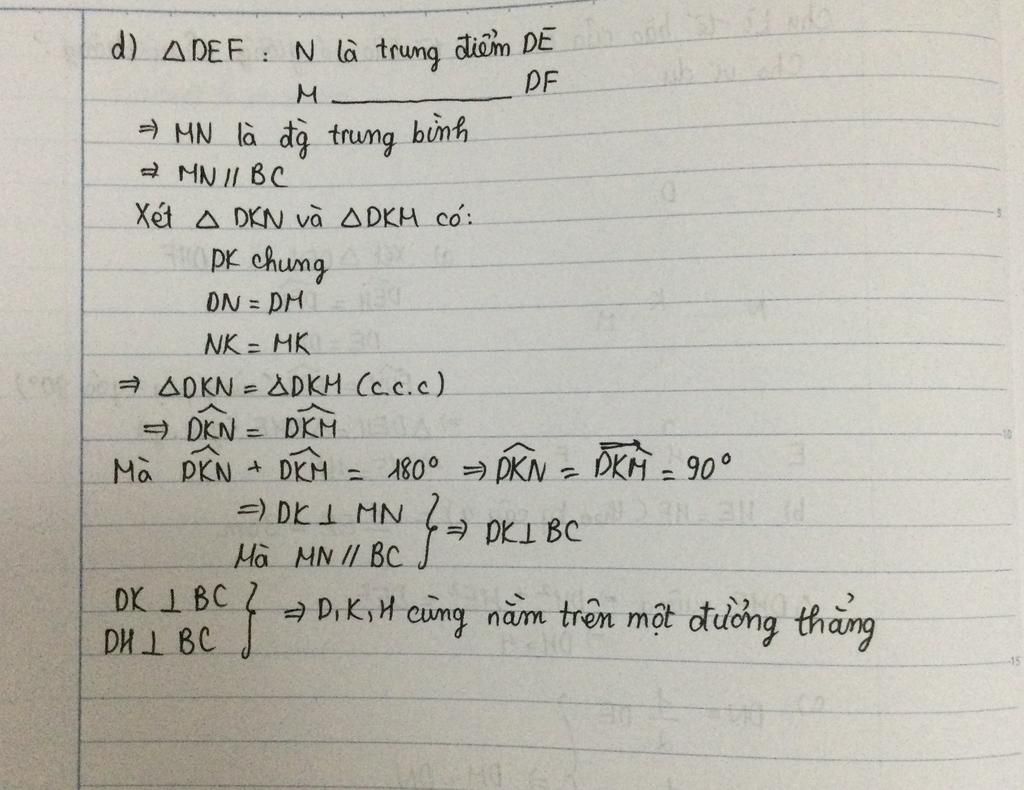 d) △DEF : N là trung điểm DE
M ________ DF
⇒ MN là đg̀ trung bình
⇒ MN // BC
Xét △ DKN và △DKM có:
DK chung
DN = DM
NK = MK
⇒ △DKN = △DKM (c.c.c)
⇒ \widehat{DKN} = \widehat{DKM}
Mà \widehat{DKN} + \widehat{DKM} = 180° ⇒ \widehat{DKN} = \widehat{DKM} = 90°
⇒ DK ⊥ MN } ⇒ DK ⊥ BC
Mà MN // BC
DK ⊥ BC } ⇒ D, K, H cùng nằm trên một đường thẳng
DH ⊥ BC